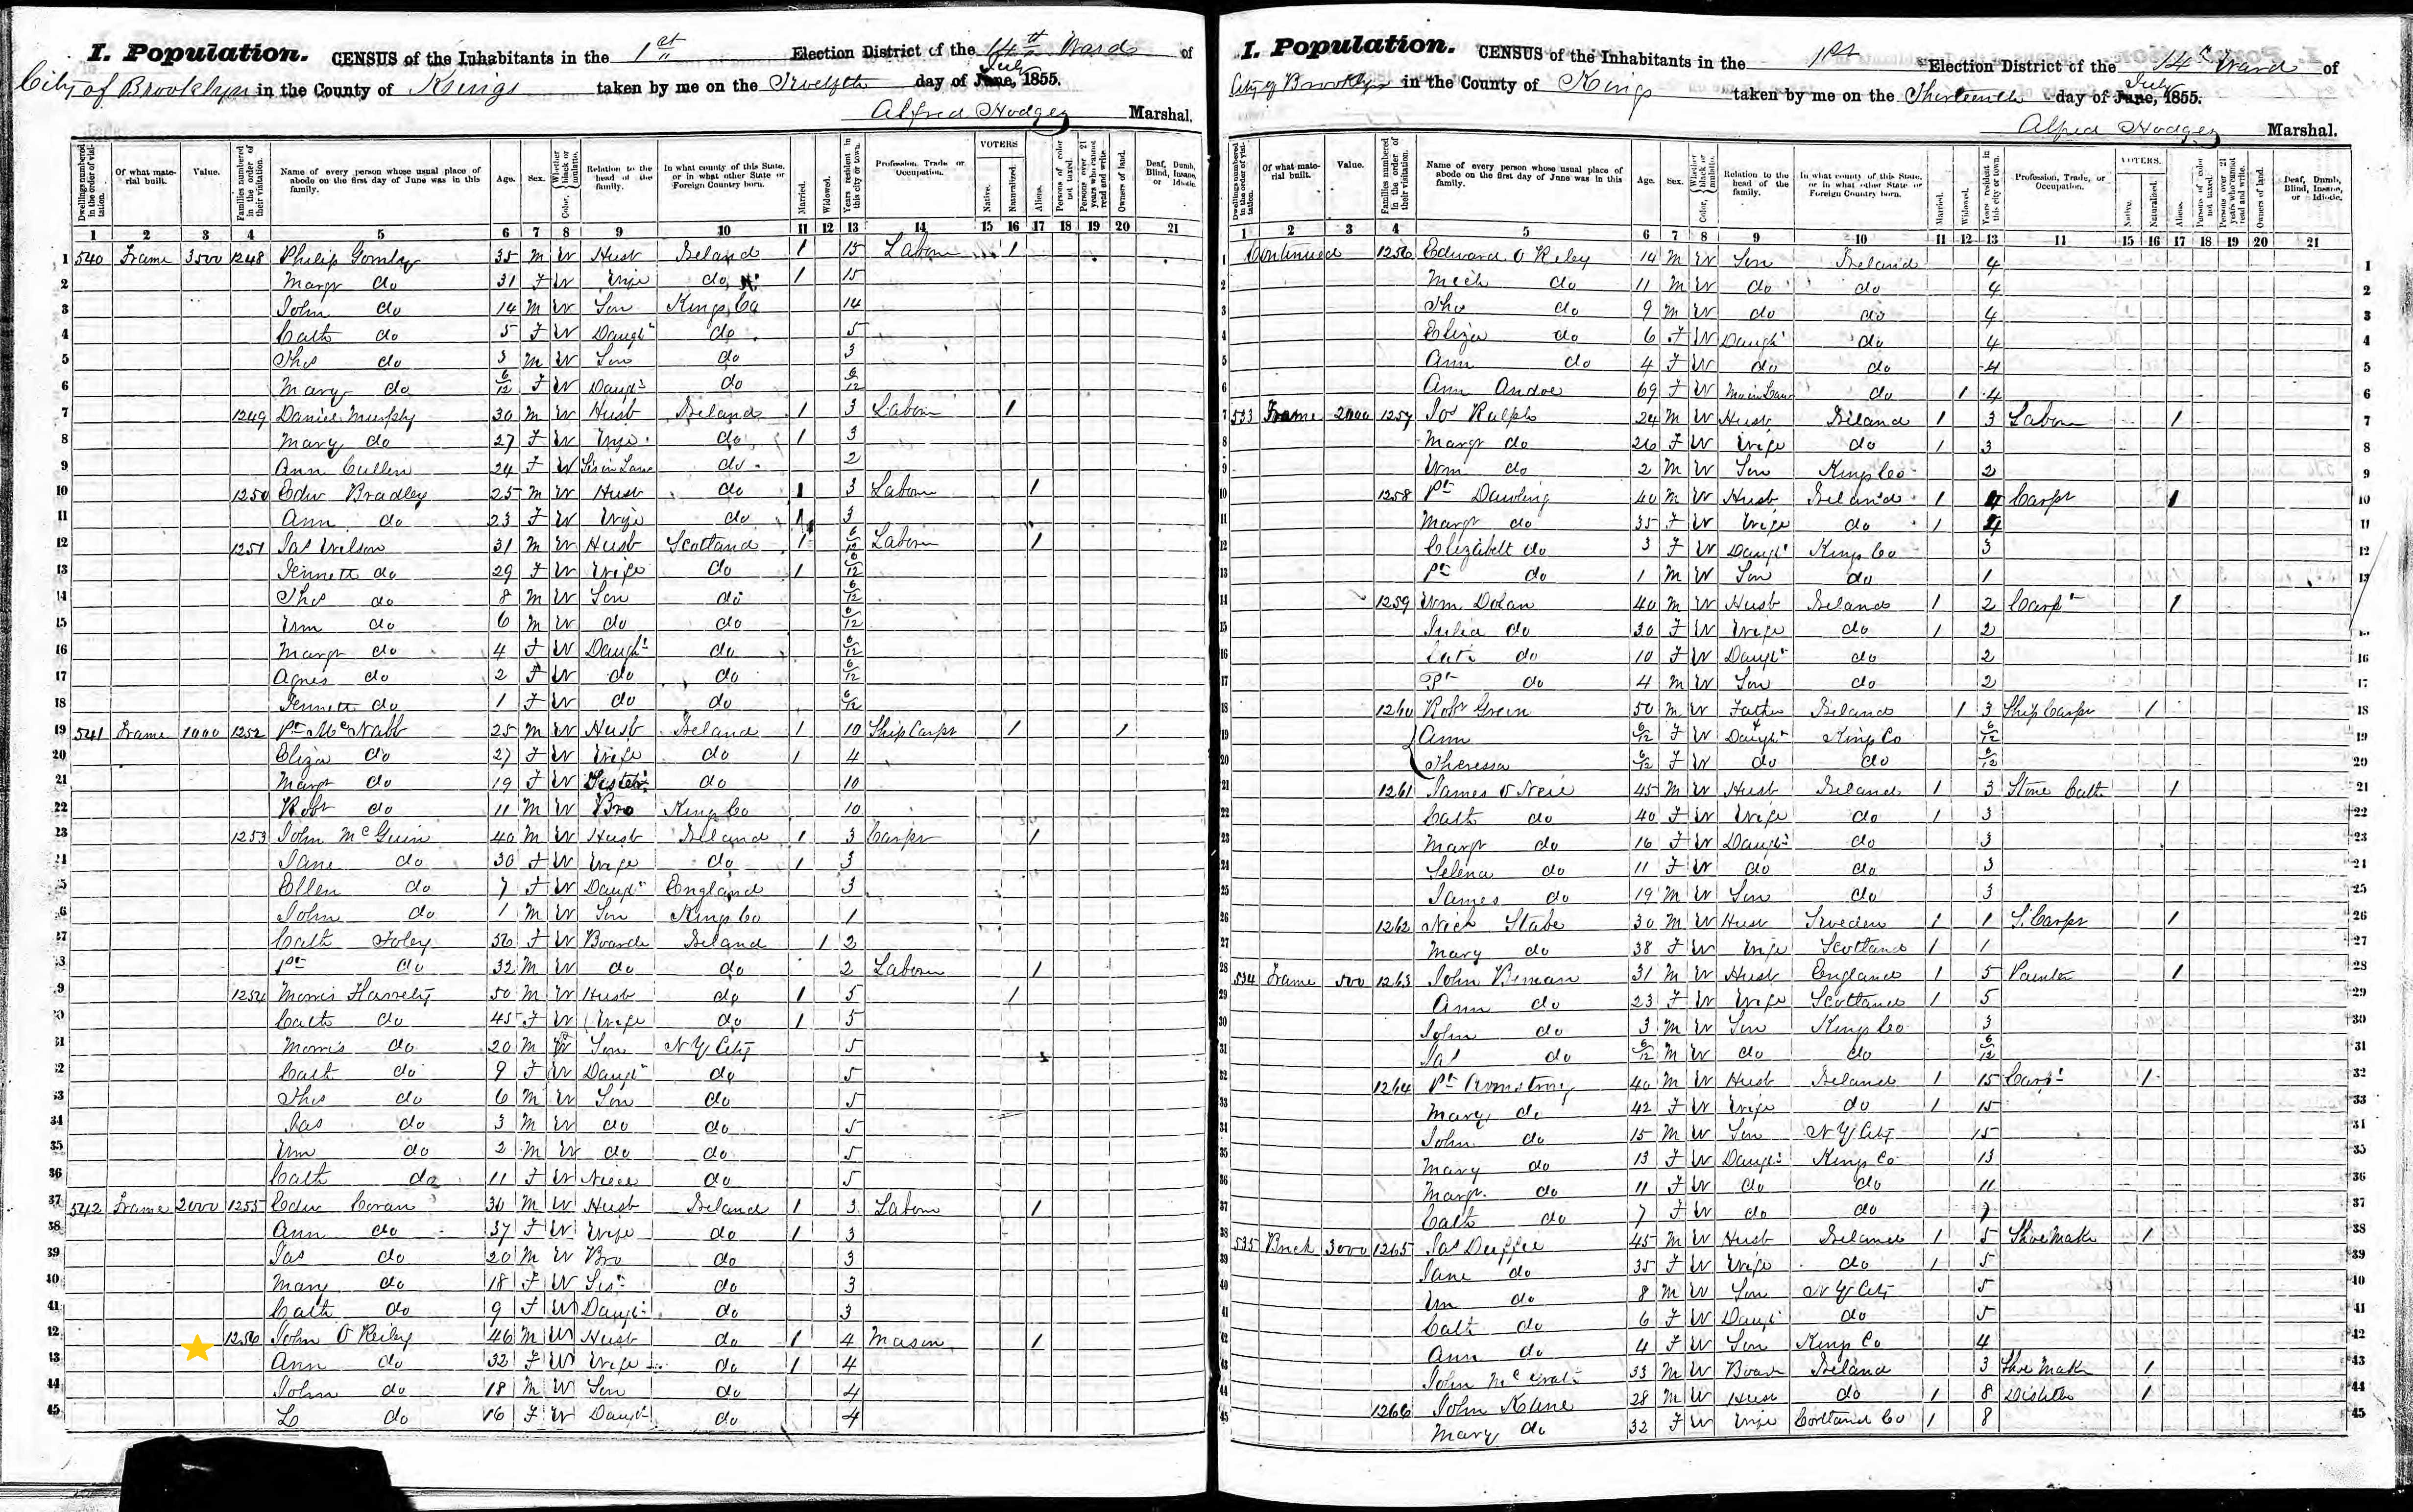 I. Population. CENSUS of the Inhabitants in the 1st Election District of the 14th Ward of
City of Brooklyn in the County of Kings taken by me on the Twelfth day of June, July 1855.
Alfred Hodges Marshal.
Dwellings numbered in the order of visitation. Of what material built. Value. Families numbered in the order of their visitation. Name of every person whose usual place of abode on the first day of June was in this family. Age. Sex. Color, Whether black or mulatto. Relation to the head of the family. In what county of this State, or in what other State or Foreign Country born. Married. Widowed. Years resident in this city or town. Profession, Trade or Occupation. VOTERS Native. Naturalized. Aliens. Persons of color not taxed. Persons over 21 years who cannot read and write. Owners of land. Deaf, Dumb, Blind, Insane, or Idiotic.
1 2 3 4 5 6 7 8 9 10 11 12 13 14 15 16 17 18 19 20 21
1 540 Frame 3500 1248 Philip 35 M W Husb Ireland 1 15 Labor 1
2 Margt do 31 F W Wife do 1 15
3 John do 14 M W Son Kings Co 14
4 Cath do 5 F W Daugt do 5
5 Thos do 3 M W Son do 3
6 Mary do 6/12 F W Daugt do 6/12
7 1249 Daniel Murphy 30 M W Husb Ireland 1 3 Labor 1
8 Mary do 27 F W Wife do 1 3
9 Ann Cullen 24 F W Sis in Law do 2
10 1250 Edw Bradley 25 M W Husb do 1 3 Labor 1
11 Ann do 23 F W Wife do 1 3
12 1251 Jas Wilson 31 M W Husb Scotland 1 6/12 Labor 1
13 Jennett do 29 F W Wife do 1 6/12
14 Thos do 8 M W Son do 6/12
15 Wm do 6 M W do do 6/12
16 Margt do 4 F W Daught do 6/12
17 Agnes do 2 F W do do 6/12
18 Jennett do 1 F W do do 6/12
19 541 Frame 1000 1252 Pt McNabb 25 M W Husb Ireland 1 10 Ship Carpt 1 1
20 Eliza do 27 F W Wife do 1 4
21 Margt do 19 F W Sister do 10
22 Robt do 11 M W Bro Kings Co 10
23 1253 John McGuin 40 M W Husb Ireland 1 3 Carpt 1
24 Jane do 30 F W Wife do 1 3
25 Ellen do 7 F W Daugt England 3
26 John do 1 M W Son Kings Co 1
27 Cath Foley 56 F W Boarder Ireland 1 2
28 Pt do 32 M W do do 2 Labor 1
29 1254 Morris 50 M W Husb do 1 5 1
30 Cath do 45 F W Wife do 1 5
31 Morris do 20 M W Son N Y City 5
32 Cath do 9 F W Daugt do 5
33 Thos do 6 M W Son do 5
34 Jas do 3 M W do do 5
35 Wm do 2 M W do do 5
36 Cath do 11 F W Niece do 5
37 542 Frame 2000 1255 Edw Coran 30 M W Husb Ireland 1 3 Labor 1
38 Ann do 37 F W Wife do 1 3
39 Jas do 20 M W Bro do 3
40 Mary do 18 F W Sisr do 3
41 Cath do 9 F W Daugt do 3
42 1256 John O Reiley 46 M W Husb do 1 4 Mason 1
43 Ann do 32 F W Wife do 1 4
44 John do 18 M W Son do 4
45 do 16 F W Daugt do 4
I. Population. CENSUS of the Inhabitants in the 1st Election District of the 14th Ward of
City of Brooklyn in the County of Kings taken by me on the Thirteenth day of June, July 1855.
Alfred Hodges Marshal.
Dwellings numbered in the order of visitation. Of what material built. Value. Families numbered in the order of their visitation. Name of every person whose usual place of abode on the first day of June was in this family. Age. Sex. Color, Whether black or mulatto. Relation to the head of the family. In what county of this State, or in what other State or Foreign Country born. Married. Widowed. Years resident in this city or town. Profession, Trade, or Occupation. VOTERS. Native. Naturalized. Aliens. Persons of color not taxed. Persons over 21 years who cannot read and write. Owners of land. Deaf, Dumb, Blind, Insane, or Idiotic.
1 2 3 4 5 6 7 8 9 10 11 12 13 11 15 16 17 18 19 20 21
1 Continued 1256 Edward O Riley 14 M W Son Ireland 4 1
2 Mich do 11 M W do do 4 2
3 Tho do 9 M W do do 4 3
4 Eliza do 6 F W Daugh do 4 4
5 Ann do 4 F W do do 4 5
6 Ann Andoe 69 F W Mo in Law do 1 4 6
7 533 Frame 2000 1257 Jos Ralph 24 M W Husb Ireland 1 3 Labor 1 7
8 Margt do 26 F W Wife do 1 3 8
9 Wm do 2 M W Son Kings Co 2 9
10 1258 Pt Dawling 40 M W Husb Ireland 1 4 Carpt 1 10
11 Margt do 35 F W Wife do 1 4 11
12 Elizabeth do 3 F W Daugt Kings Co 3 12
13 Pt do 1 M W Son do 1 13
14 1259 Wm Dolan 40 M W Husb Ireland 1 2 Carpt 1
15 Julia do 30 F W Wife do 1 2
16 do 10 F W Daugt do 2 16
17 Pt do 4 M W Son do 2 17
18 1260 Robt Green 50 M W Father Ireland 1 3 Ship Carpt 1 18
19 Ann 6/12 F W Daught Kings Co 6/12 19
20 Theressa 6/12 F W do do 6/12 20
21 1261 James O Neil 45 M W Husb Ireland 1 3 Stone Cutt 1 21
22 Cath do 40 F W Wife do 1 3 22
23 Margt do 16 F W Daugt do 3 23
24 Selena do 11 F W do do 3 24
25 James do 19 M W Son do 3 25
26 1262 Nich Stabe 30 M W Husb Sweden 1 1 S. Carpt 1 26
27 Mary do 38 F W Wife Scotland 1 1 27
28 534 Frame 500 1263 John Beman 31 M W Husb England 1 5 Painter 1 28
29 Ann do 23 F W Wife Scotland 1 5 29
30 John do 3 M W Son Kings Co 3 30
31 Jas do 6/12 M W do do 6/12 31
32 1264 Pt Armstrong 40 M W Husb Ireland 1 15 Carpt 1 32
33 Mary do 42 F W Wife do 1 15 33
34 John do 15 M W Son N Y City 15 34
35 Mary do 13 F W Daugt Kings Co 13 35
36 Margt do 11 F W do do 11 36
37 Cath do 7 F W do do 7 37
38 535 Brick 3000 1265 Jas Duffee 45 M W Husb Ireland 1 5 Shoe Mak 1 38
39 Jane do 35 F W Wife do 1 5 39
40 Wm do 8 M W Son N Y City 5 40
41 Cath do 6 F W Daugt do 5 41
42 Ann do 4 F W Son Kings Co 4 42
43 John 33 M W Board Ireland 3 Shoe Mak 1 43
44 1266 John Kline 28 M W Husb do 1 8 1 44
45 Mary do 32 F W Wife Cortland Co 1 8 45